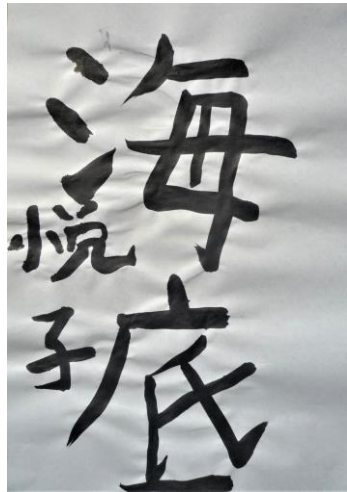 海底
悦子